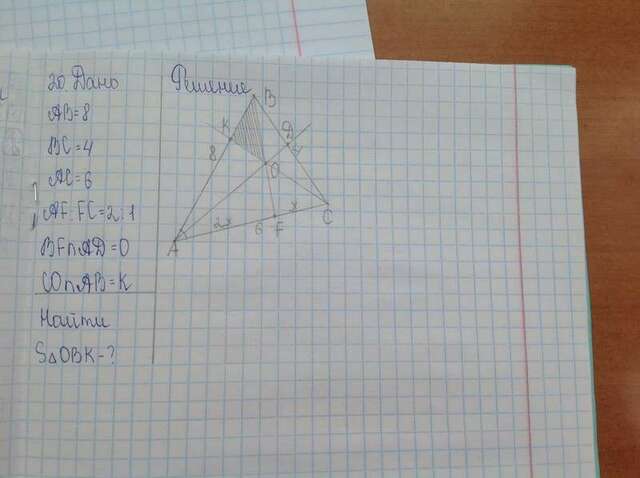 20. Дано
AB=8
BC=4
AC=6
AF:FC=2:1
BF∩AD=O
CO∩AB=K
Найти
S△OBK-?
Решение
B
K
D
8
4
O
2x
6
F
x
C
A